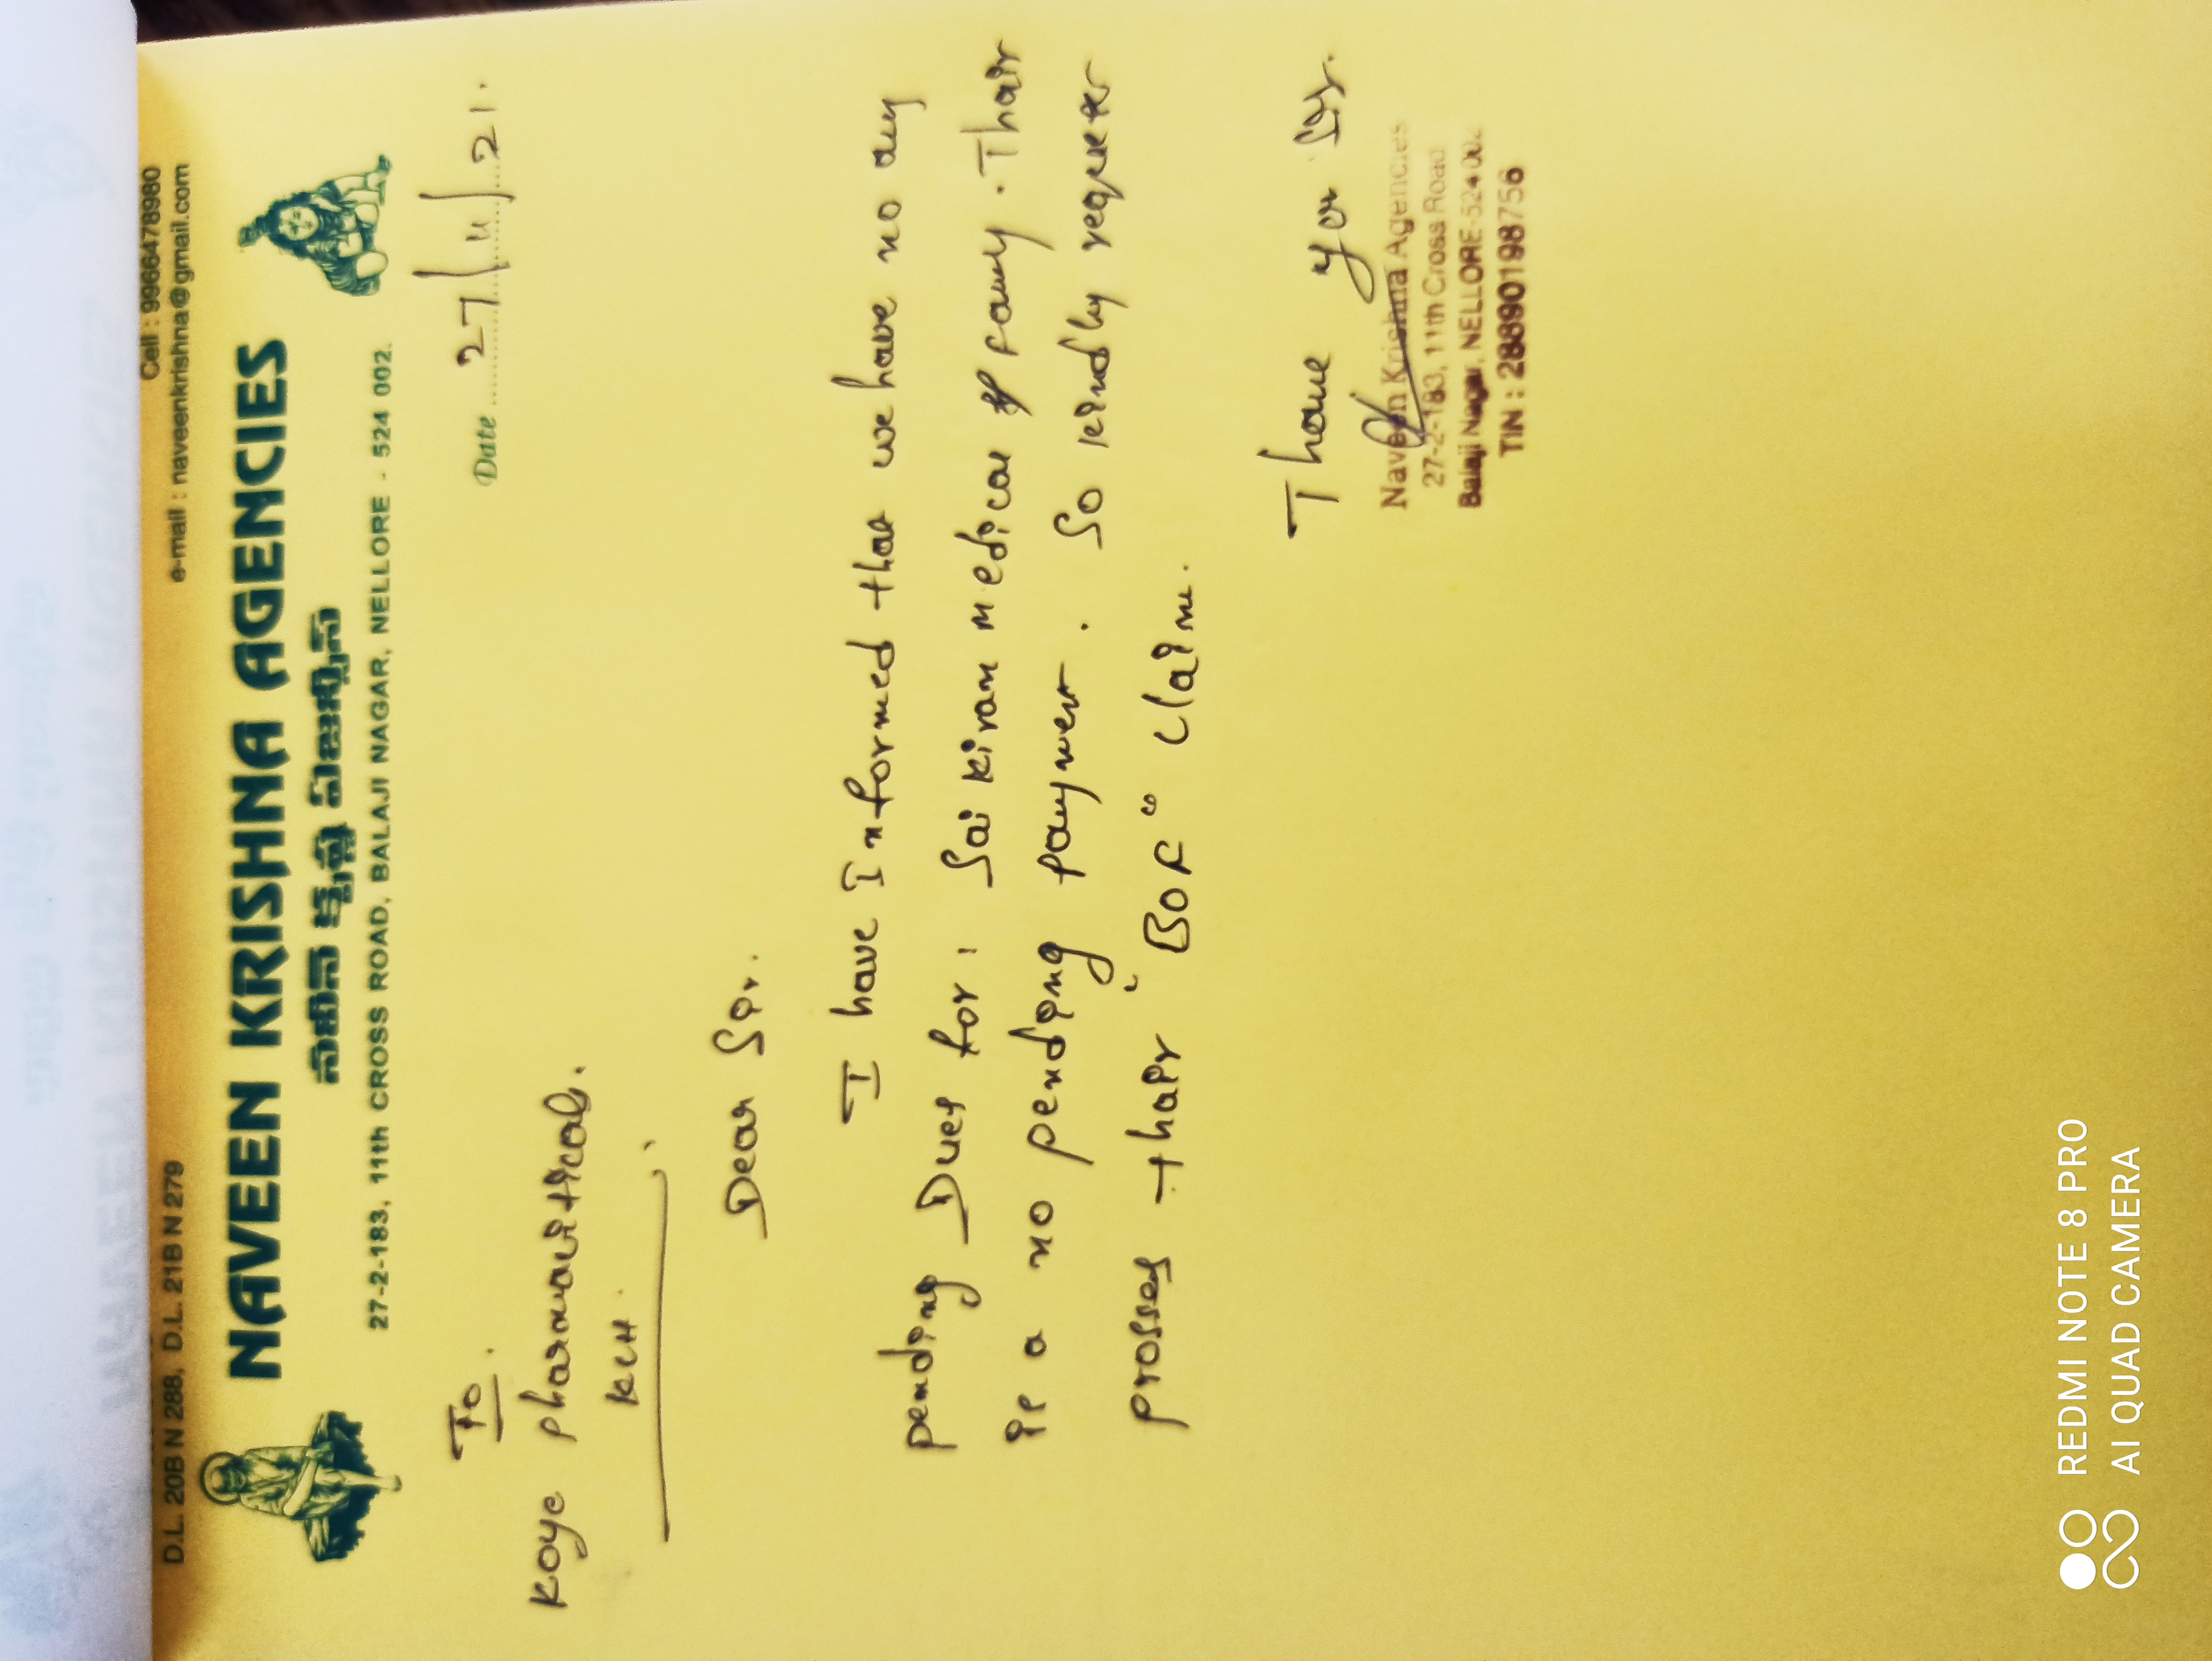 D.L. 20B N 288, D.L. 21B N 279
Cell : 9966478980
e-mail : naveenkrishna@gmail.com
NAVEEN KRISHNA AGENCIES
నవీన్ కృష్ణ ఏజెన్సీస్
27-2-183, 11th CROSS ROAD, BALAJI NAGAR, NELLORE - 524 002.
Date 27/11/21.
To.
Koye pharmauitical.
KCH.
Dear Sir.
I have Informed that we have no any
pending Dues for: Sai Kiran medical & fancy. Thair
is a no pending payment. So kindly requeter
prosses thair "BOF" claim.
Thank you Sir.
Naveen Krishna Agencies
27-2-183, 11th Cross Road
Balaji Nagar, NELLORE-524 002.
TIN : 28890198756
REDMI NOTE 8 PRO
AI QUAD CAMERA